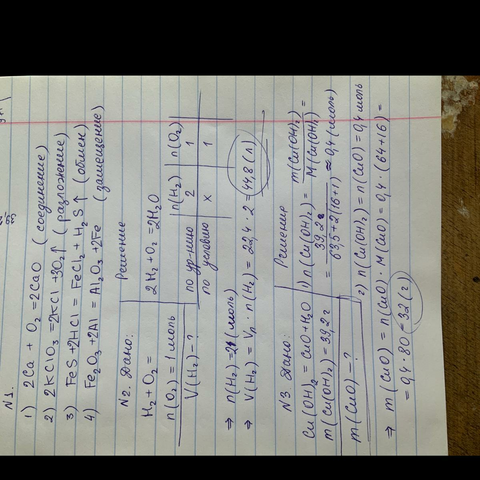 N1.
1) 2Ca + O₂ = 2CaO (соединение)
2) 2KClO₃ = 2KCl + 3O₂↑ (разложение)
3) FeS + 2HCl = FeCl₂ + H₂S↑ (обмен)
4) Fe₂O₃ + 2Al = Al₂O₃ + 2Fe (замещение)
N2. Дано:
H₂ + O₂ =
n(O₂) = 1 моль
V(H₂) - ?
Решение
2H₂ + O₂ = 2H₂O
n(H₂) n(O₂)
по ур-нию 2 1
по условию x 1
⇒ n(H₂) = 2 (моль)
⇒ V(H₂) = Vₙ · n(H₂) = 22,4 · 2 = 44,8 (л)
N3 Дано:
Cu(OH)₂ = CuO + H₂O
m(Cu(OH)₂) = 39,2 г
m(CuO) - ?
Решение
1) n(Cu(OH)₂) = m(Cu(OH)₂) / M(Cu(OH)₂) =
= 39,2 / 63,5 + 2(16+1) ≈ 0,4 (моль)
2) n(Cu(OH)₂) = n(CuO) = 0,4 моль
⇒ m(CuO) = n(CuO) · M(CuO) = 0,4 · (64+16) =
= 0,4 · 80 = 32 (г)